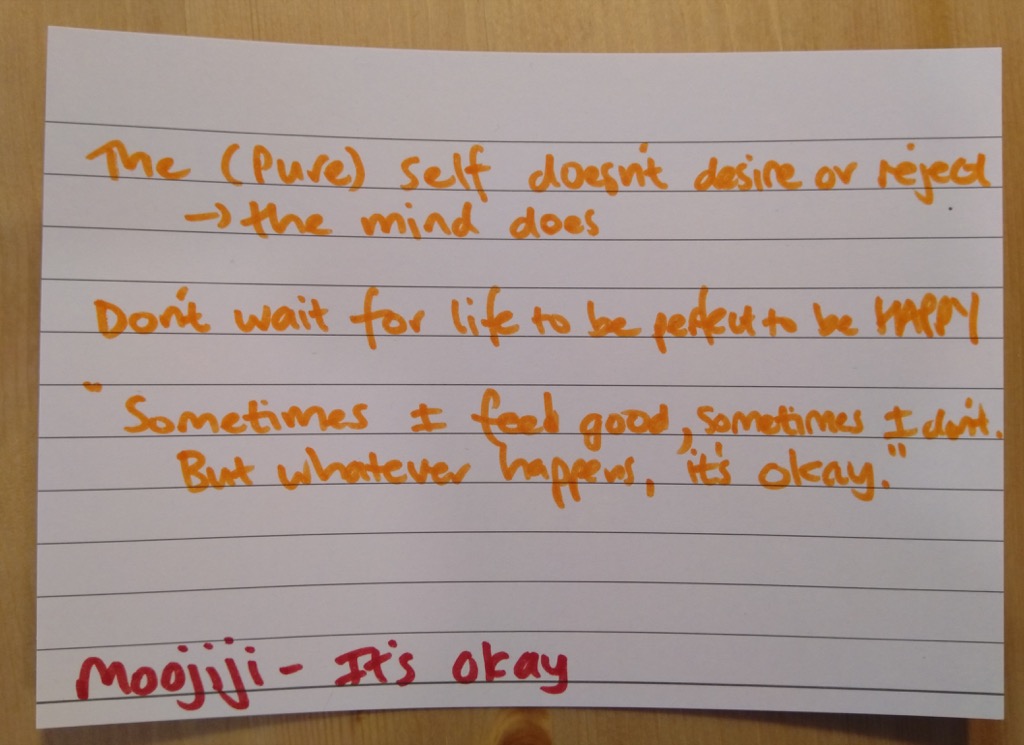 The (Pure) self doesn't desire or reject
→ the mind does
Don't wait for life to be perfect to be HAPPY
"Sometimes I feel good, sometimes I don't.
But whatever happens, it's okay."
Moojiji - It's okay